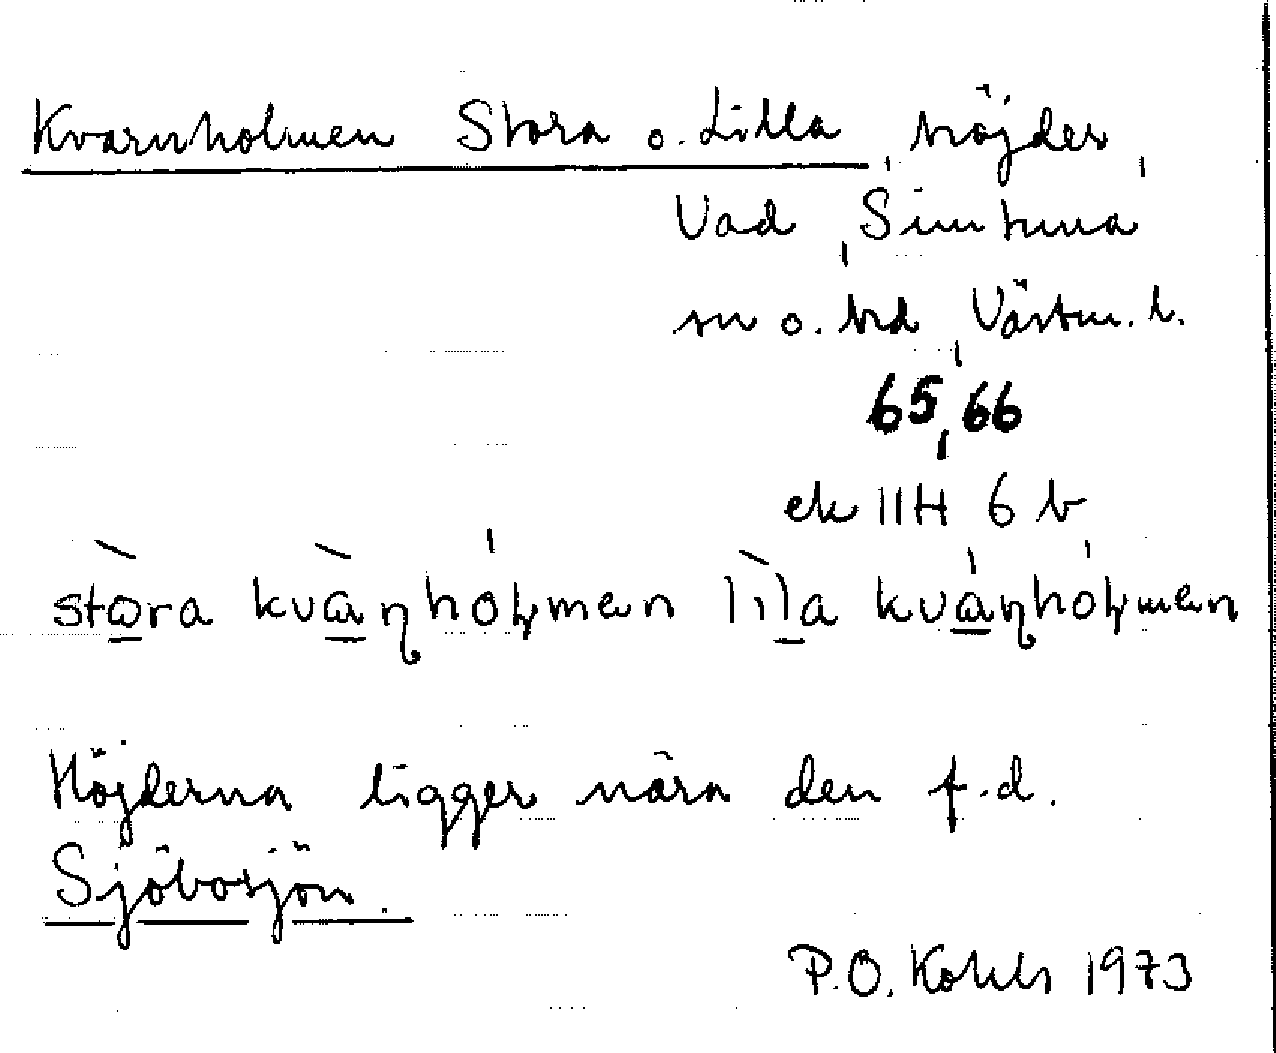 Kvarnholmen Stora o. Lilla, höjder,
Vad, Simtuna
sn o. hd, Västm. l.
65, 66
ek 11H 6 b
stòra kvàɳhólmen lìla kváɳhólmen
Höjderna ligger nära den f.d.
Sjöbosjön.
P.O. 1973